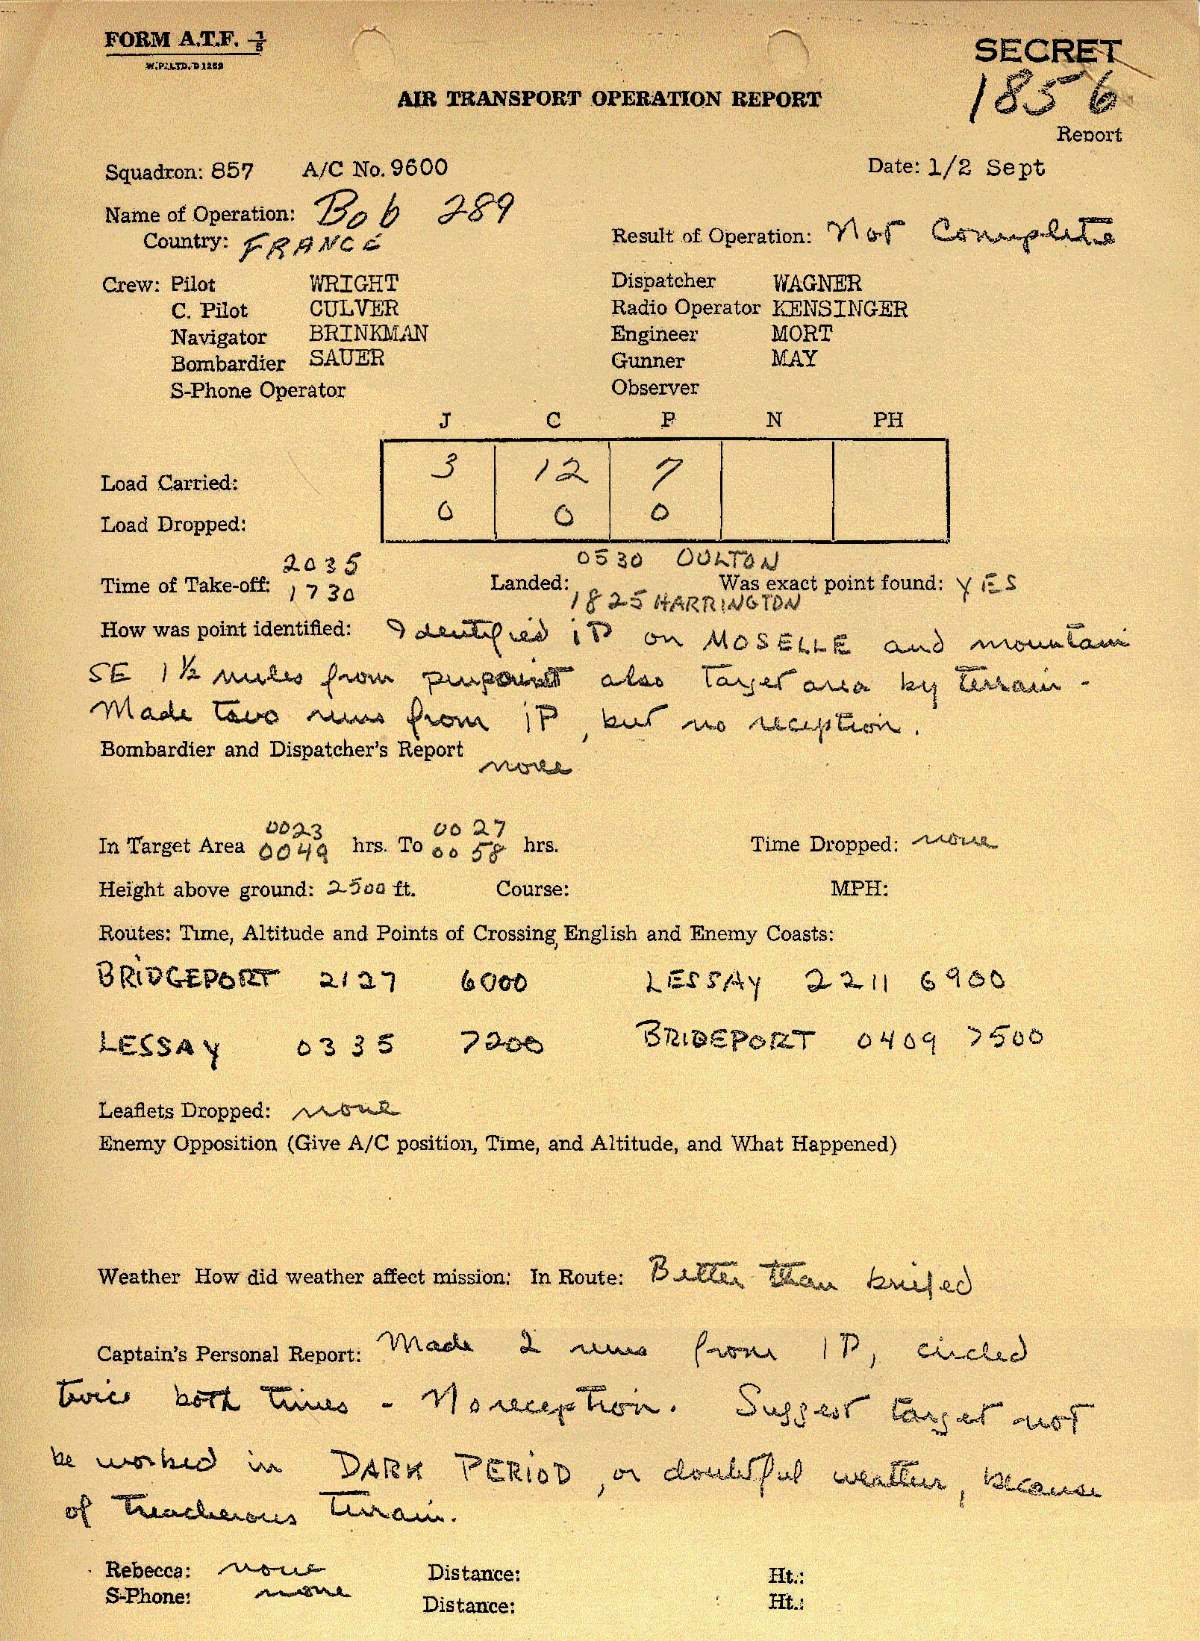 FORM A.T.F. 1/5
W.P.LTD. D1269
SECRET
1856
AIR TRANSPORT OPERATION REPORT
Report
Squadron: 857 A/C No. 9600 Date: 1/2 Sept
Name of Operation: Bob 289
Country: FRANCE Result of Operation: Not Complete
Crew: Pilot WRIGHT Dispatcher WAGNER
C. Pilot CULVER Radio Operator KENSINGER
Navigator BRINKMAN Engineer MORT
Bombardier SAUER Gunner MAY
S-Phone Operator Observer
J C P N PH
Load Carried: 3 12 7
Load Dropped: 0 0 0
2035 0530 OULTON
Time of Take-off: 1730 Landed: 1825 HARRINGTON Was exact point found: YES
How was point identified: Identified IP on MOSELLE and mountain
SE 1 1/2 miles from pinpoint also target area by terrain -
Made two runs from IP, but no reception.
Bombardier and Dispatcher's Report none
0023 0027
In Target Area 0049 hrs. To 0058 hrs. Time Dropped: none
Height above ground: 2500 ft. Course: MPH:
Routes: Time, Altitude and Points of Crossing English and Enemy Coasts:
BRIDGEPORT 2127 6000 LESSAY 2211 6900
LESSAY 0335 7200 BRIDEPORT 0409 7500
Leaflets Dropped: none
Enemy Opposition (Give A/C position, Time, and Altitude, and What Happened)
Weather How did weather affect mission: In Route: Better than briefed
Captain's Personal Report: Made 2 runs from IP, circled
twice both times - No reception. Suggest target not
be worked in DARK PERIOD, or doubtful weather, because
of treacherous terrain.
Rebecca: none Distance: Ht.:
S-Phone: none Distance: Ht.: